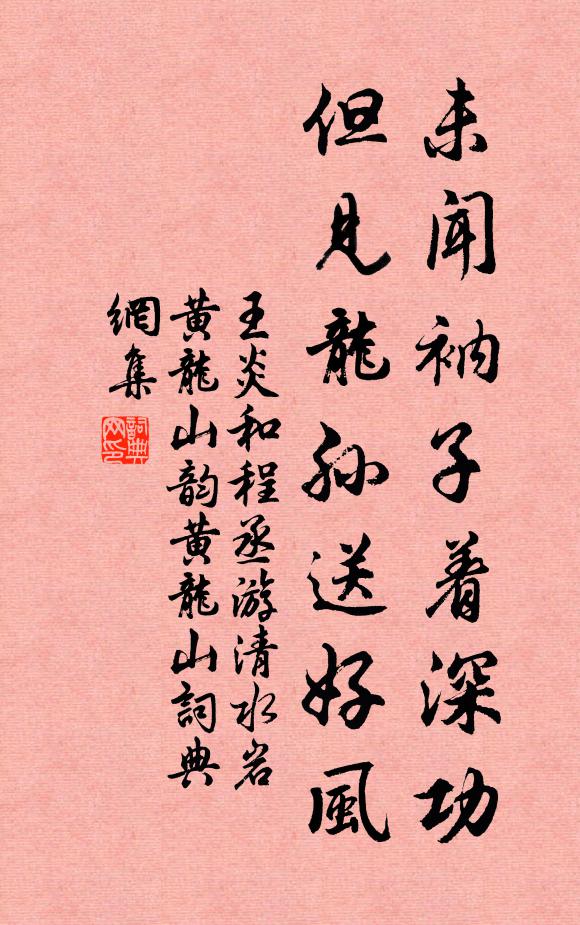 未聞衲子着深功
但見龍孫送好風
王炎和程丞游清水岩
黄龍山韵黄龍山詞典
網集
詞典
网印